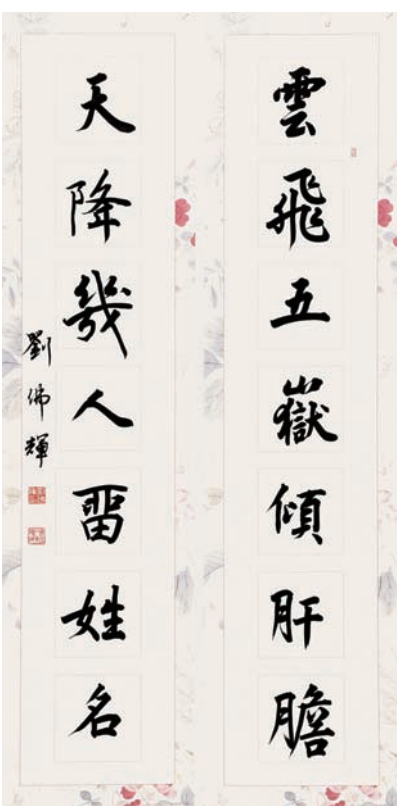 雲飛五嶽傾肝膽
天降幾人畱姓名
劉佛輝